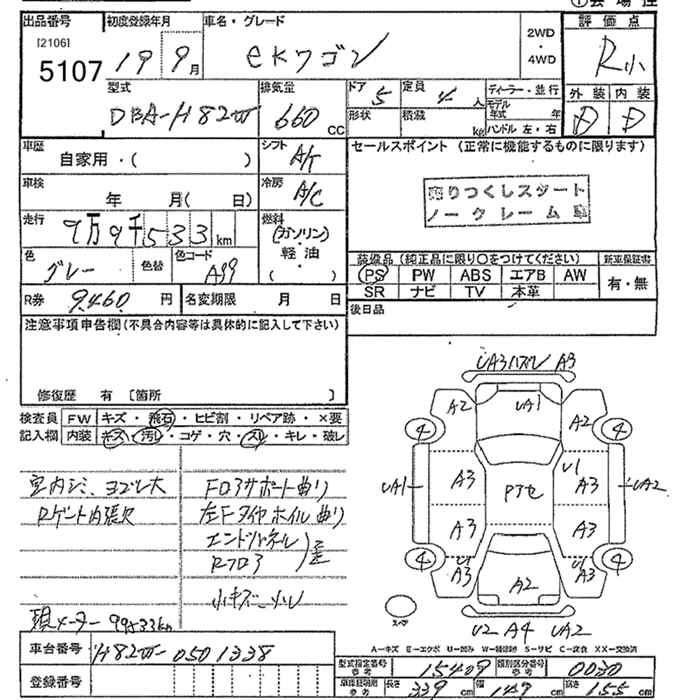 ①会 場 控
出品番号 初度登録年月 車名・グレード 評 価 点
[2106]
5107 19 9月 eKワゴン 2WD・4WD R小
型式 排気量 ドア 定員 ディーラー・並行 外 装 内 装
DBA-H82W 660 CC 5 4 人 モデル年式 年 D D
形状 積載 kg ハンドル 左・右
車歴 シフト セールスポイント (正常に機能するものに限ります)
自家用・( ) A/T
車検 冷房 売りつくしスタート
年 月( 日) A/C ノークレーム
走行 燃料
9万9千533km (ガソリン)・軽油・( )
色 色替 色コード 装備品 (純正品に限り○をつけてください) 新車保証書
グレー A99 PS PW ABS エアB AW 有・無
R券 9,460 円 名変期限 月 日 SR ナビ TV 本革
注意事項申告欄 (不具合内容等は具体的に記入して下さい) 後日品
修復歴 有 〔箇所 〕
検査員 FW キズ・飛石・ヒビ割・リペア跡・×要
記入欄 内装 キズ・汚レ・コゲ・穴・スレ・キレ・破レ
UA3ハズレ A3
A2 UA1 A2
4 4
A3 U1 A3
UA1 Pアセ UA2
A3 A3
4 4
U1 A3 A2 U1 A3
スペア
U2 A4 UA2
室内シミ、ヨゴレ大 Fロアサポート曲り
Rゲート内張欠 左Fタイヤホイル曲り
エンドパネル
Rフロア 歪
小キズ
現メーター 99533km
A-キズ E-エクボ U-凹み W-補修跡 S-サビ C-腐食 XX-交換済
車台番号 H82W-0501338
型式指定番号 参考 15409 類別区分番号 参考 0030
登録番号 長さ 339 cm 幅 147 cm 高さ 155 cm